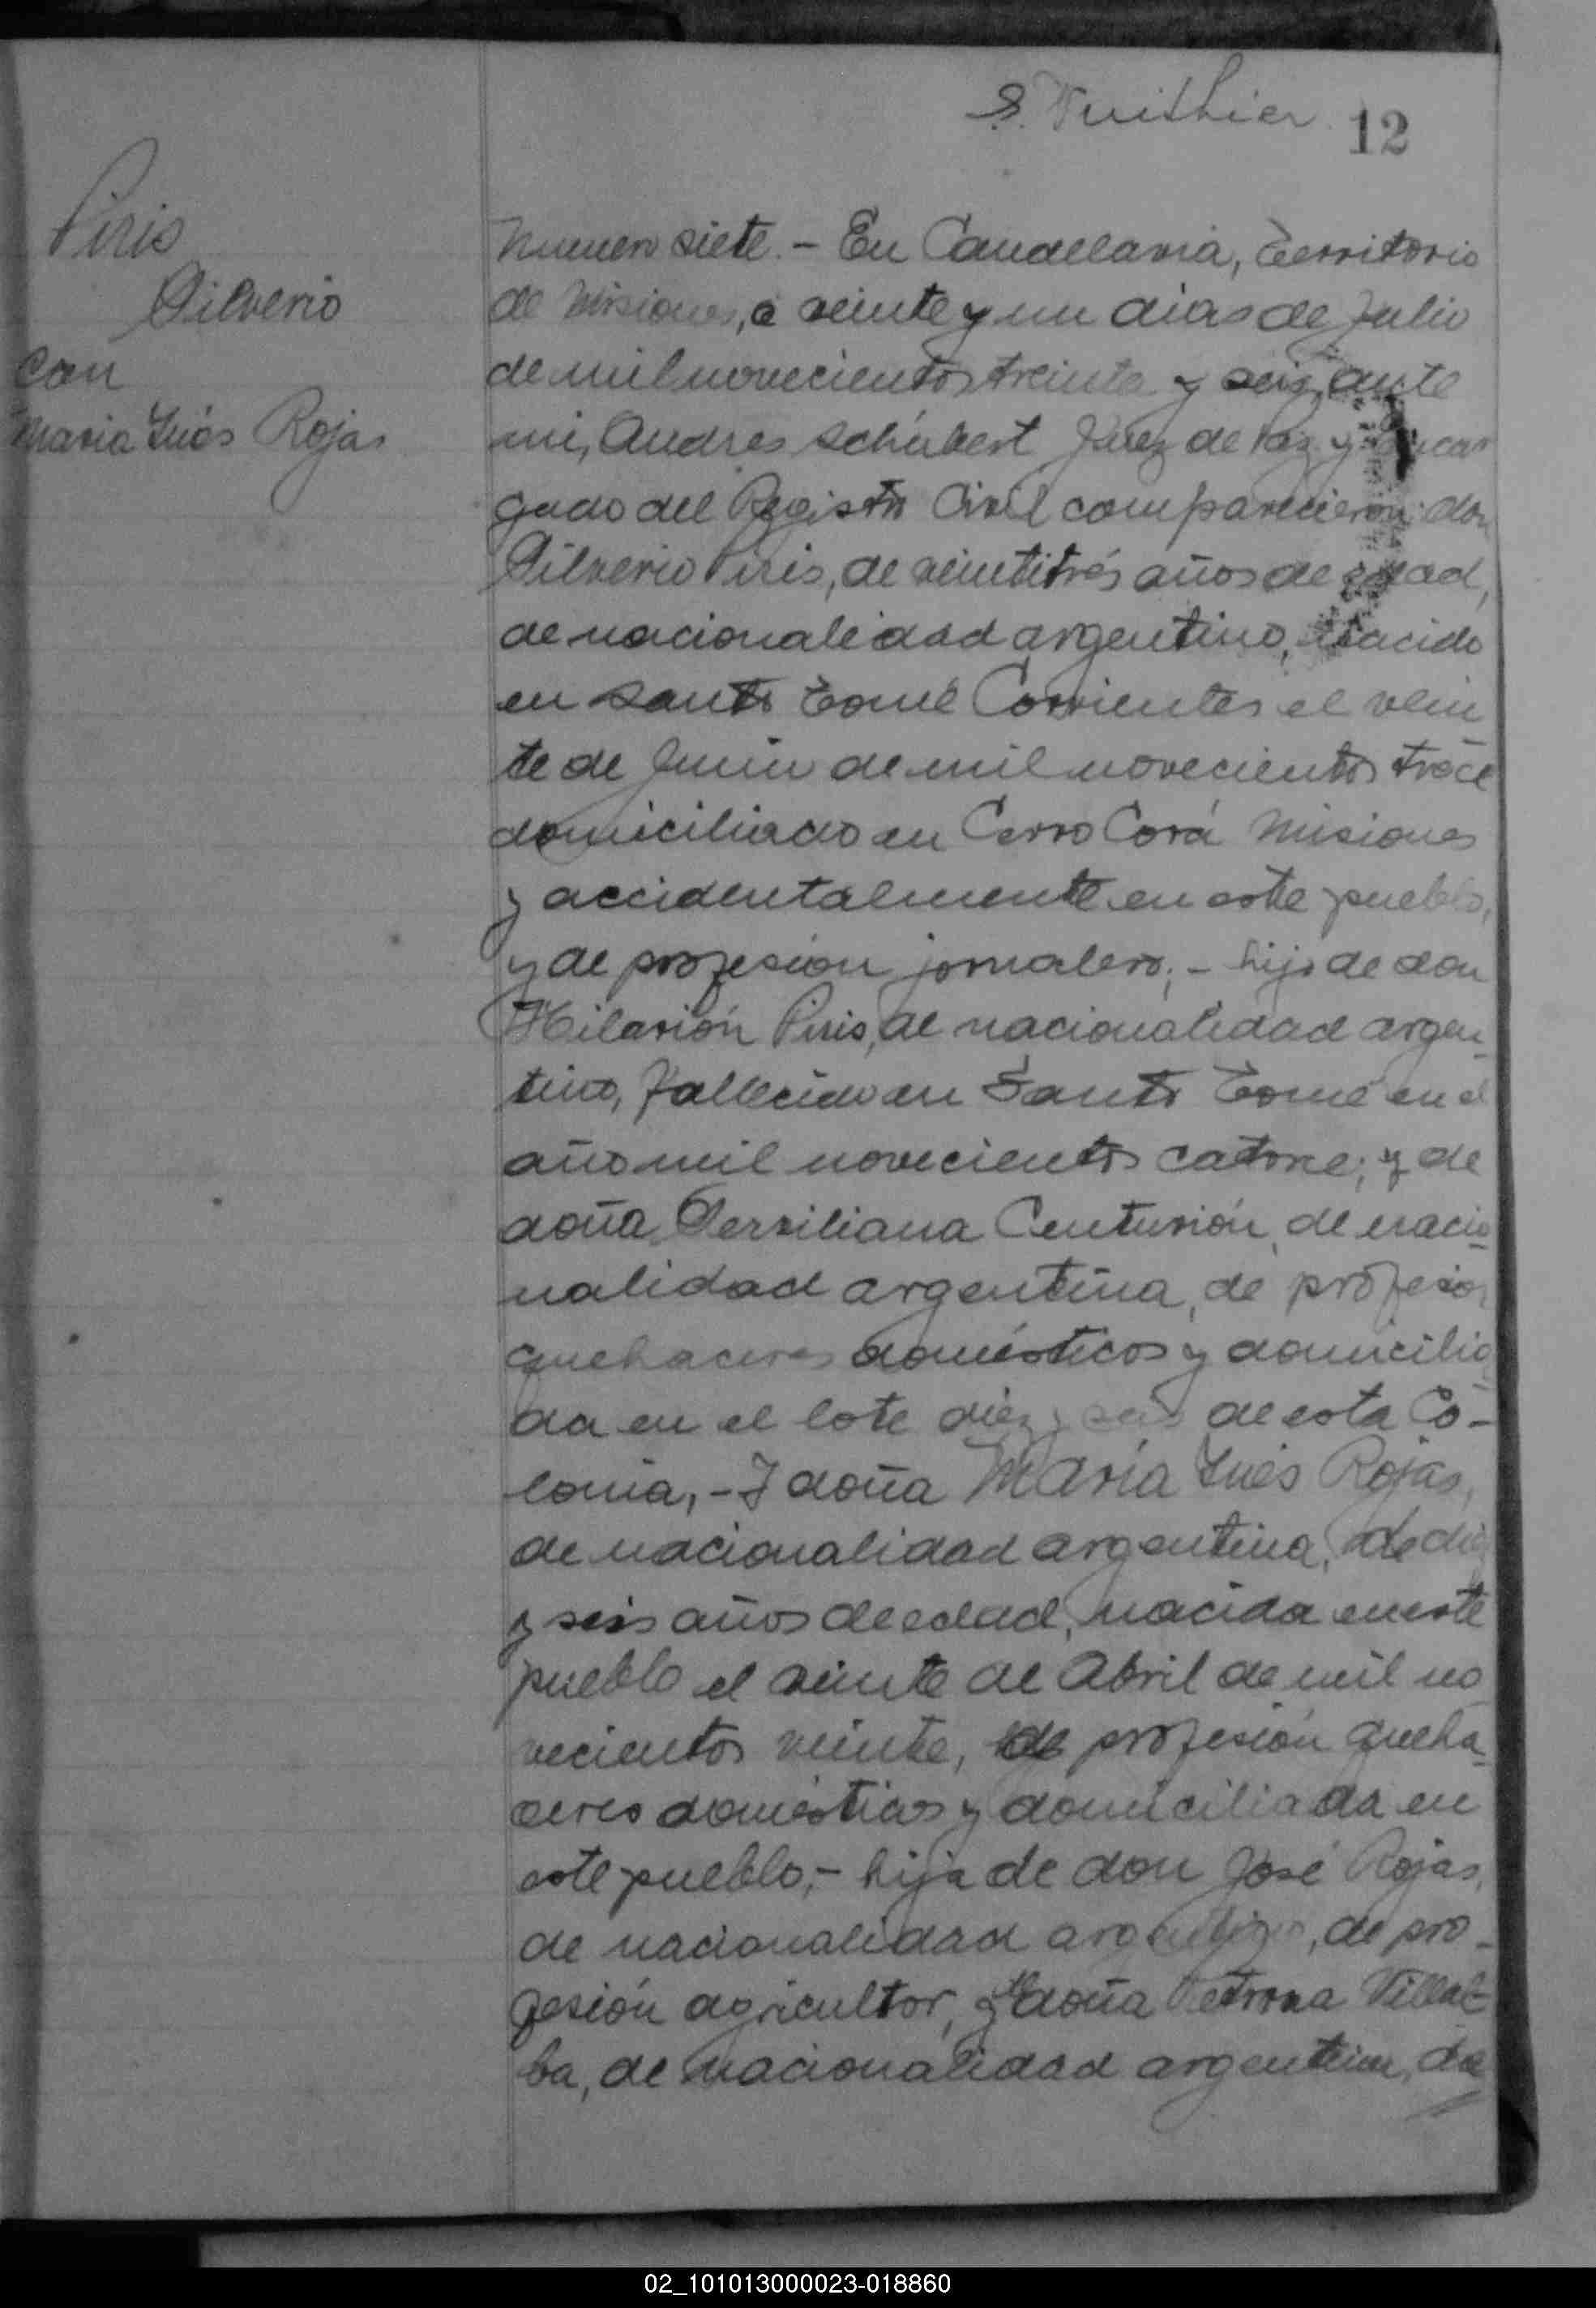 S. Vuithier 12
Piris
Silverio
con
Maria Inés Rojas
Numero siete. - En Candelaria, Territorio
de Misiones, a veinte y un dias de Julio
de mil novecientos treinta y seis, ante
mi, Andres Schubert Juez de Paz y encar
gado del Registro Civil comparecieron: don
Silverio Piris, de veintitrés años de edad,
de nacionalidad argentino, nacido
en Santo Tomé Corrientes el vein
te de Junio de mil novecientos trece
domiciliado en Cerro Corá Misiones
y accidentalmente en este pueblo,
y de profesión jornalero; - hijo de don
Hilarión Piris, de nacionalidad argen-
tino, fallecido en Santo Tomé en el
año mil novecientos catorce; y de
doña Serviliana Centurión, de nacio-
nalidad argentina, de profesión
quehaceres domésticos y domicilia-
da en el lote diez y seis de esta Co-
lonia, - Y doña María Inés Rojas,
de nacionalidad argentina, de diez
y seis años de edad, nacida en este
pueblo el veinte de Abril de mil no
vecientos veinte, de profesión queha-
ceres domésticos y domiciliada en
este pueblo, - hija de don José Rojas,
de nacionalidad argentino, de pro-
fesión agricultor, y de doña Petrona Villal-
ba, de nacionalidad argentina, de
02_101013000023-018860